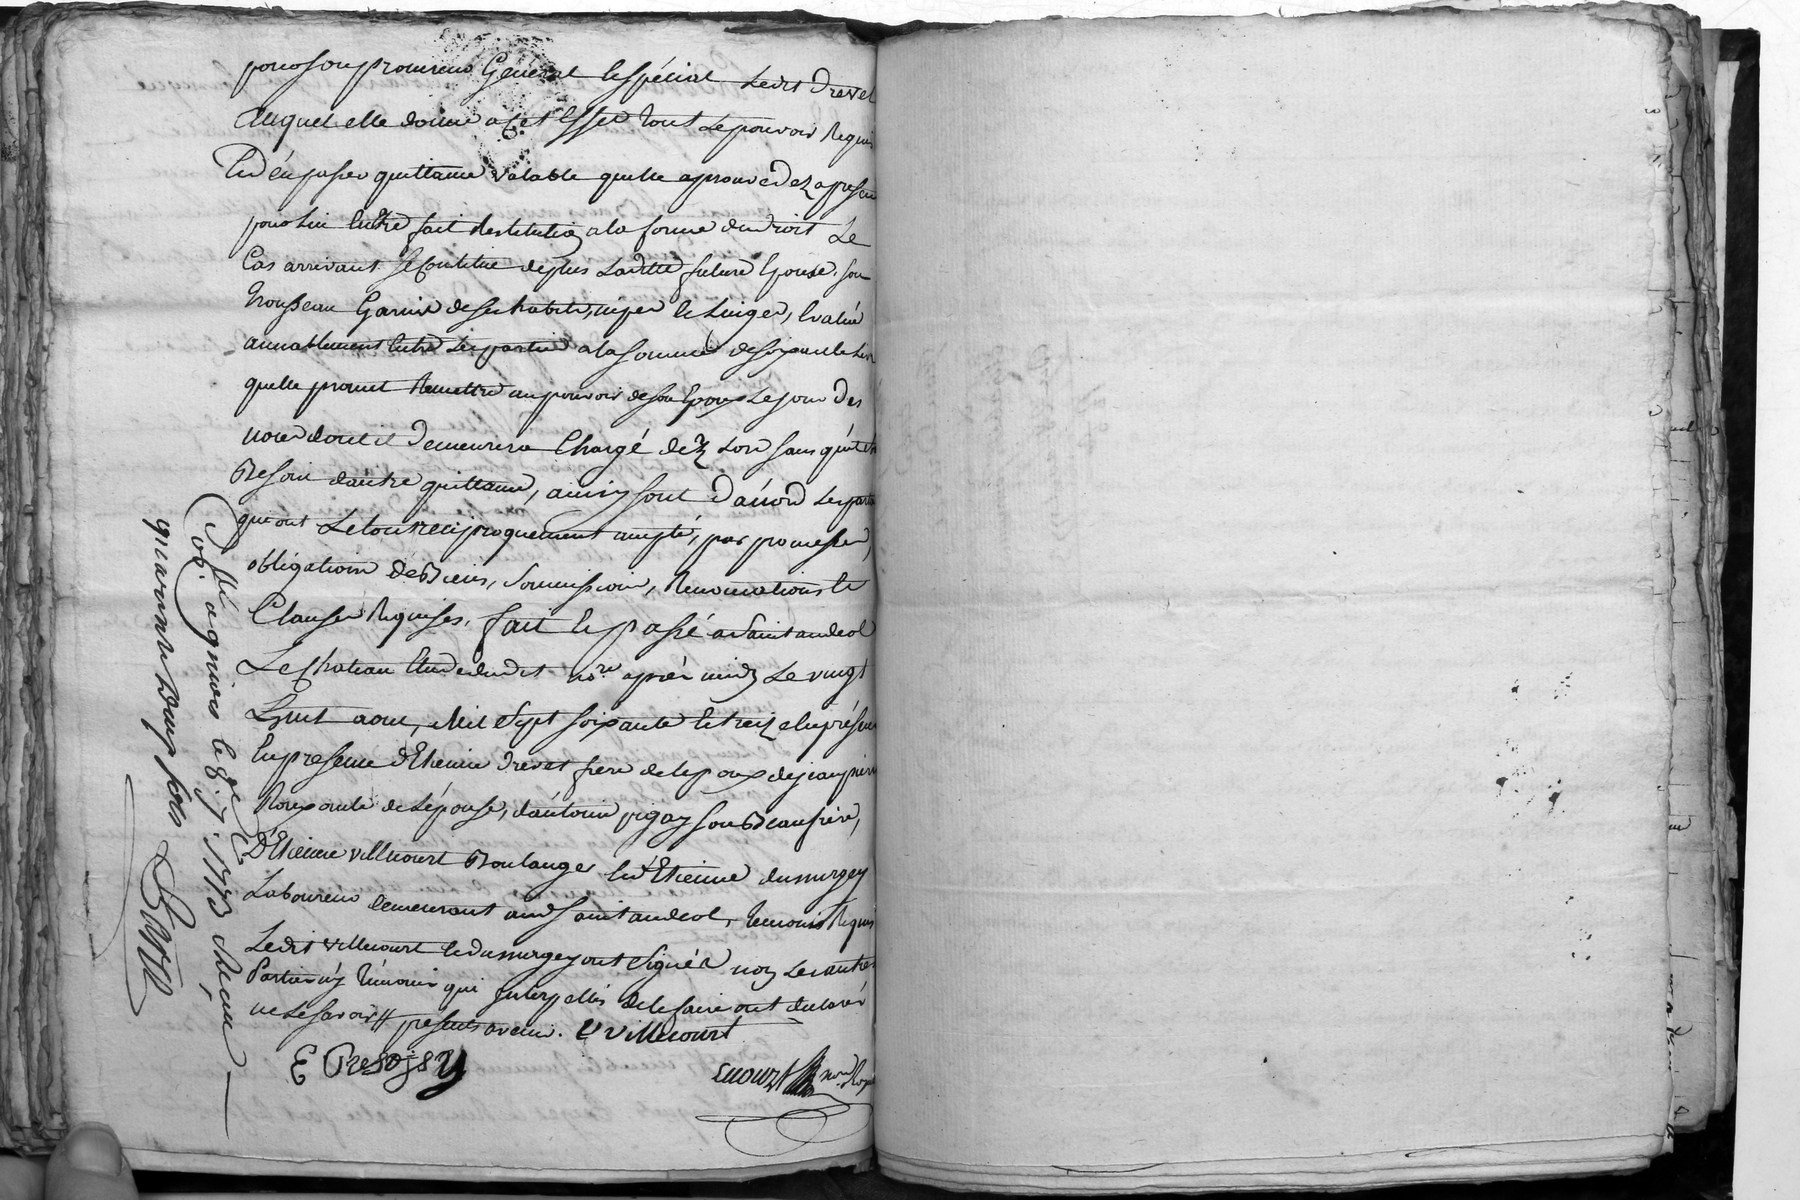 pour son procureur General Et spécial Ledit Drevet
Auquel elle donne a Cet Effet tout Le pouvoir Requis
Et d'én passer quittance valable quelle aprouve dez apresent
pour lui Entre fait Restitution a la forme du droit Le
Cas arrivant Se Constitue de plus Laditte future Epouse, son
trousseau Garnie de ses habits, nipes Et Linges, Evalué
amiablement Entre Les partie a la somme de soixante Liv
quelle promet Remettre au pouvoir de son Epoux Le jour des
noces dont il Demeurera Chargé dez Lors sans qu'il
Besoin dautre quittance, ainsy sont D'accord Les parties
qui ont Le tout reciproquement accepté, par promesses,
obligations de Biens, Soumissions, Renonciations Et
Clauses Requises, fait Et passé a Saint andeol
Le Chateau Etude dudit no.re aprés midy Le vingt
huit aout, Mil Sept soixante Et treiz
En presence d'Etienne Drevet frere de Lepoux de jean pierre
Roux oncle de Lépouse, d'antoine pigay son Beaufrere,
D'Etienne villecourt Boulanger Et d'Etienne dumurgey
Laboureur demeurant aud Saint andeol, temoins Requis
Ledit villecourt Et dumurgey ont Signé & non Les autres
Parties ny témoins qui Interpellés de le faire ont declaré
ne Le savoir presents avenir. E villecourt
E
no.re Royal
Coll. a le 8. 7.bre 1773 Reçu
quarante deux sols